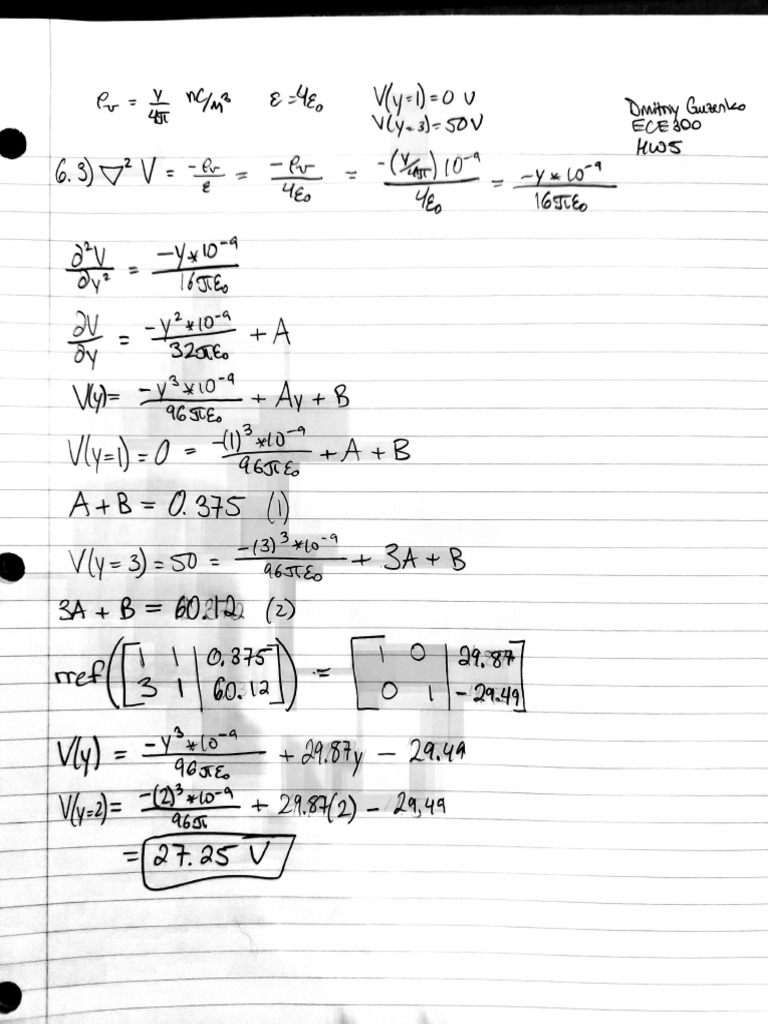 ρv = y/4π nC/m³ ε = 4ε₀ V(y=1) = 0 V
V(y=3) = 50V
Dmitriy Guzenko
ECE300
HW5
6.3) ∇² V = -ρv/ε = -ρv/4ε₀ = -(y/4π)10⁻⁹/4ε₀ = -y*10⁻⁹/16πε₀
∂²V/∂y² = -y*10⁻⁹/16πε₀
∂V/∂y = -y²*10⁻⁹/32πε₀ + A
V(y) = -y³*10⁻⁹/96πε₀ + Ay + B
V(y=1) = 0 = -(1)³*10⁻⁹/96πε₀ + A + B
A + B = 0.375 (1)
V(y=3) = 50 = -(3)³*10⁻⁹/96πε₀ + 3A + B
3A + B = 60.12 (2)
rref([1 1 | 0.375
3 1 | 60.12]) = [1 0 | 29.87
0 1 | -29.49]
V(y) = -y³*10⁻⁹/96πε₀ + 29.87y - 29.49
V(y=2) = -(2)³*10⁻⁹/96π + 29.87(2) - 29.49
= 27.25 V